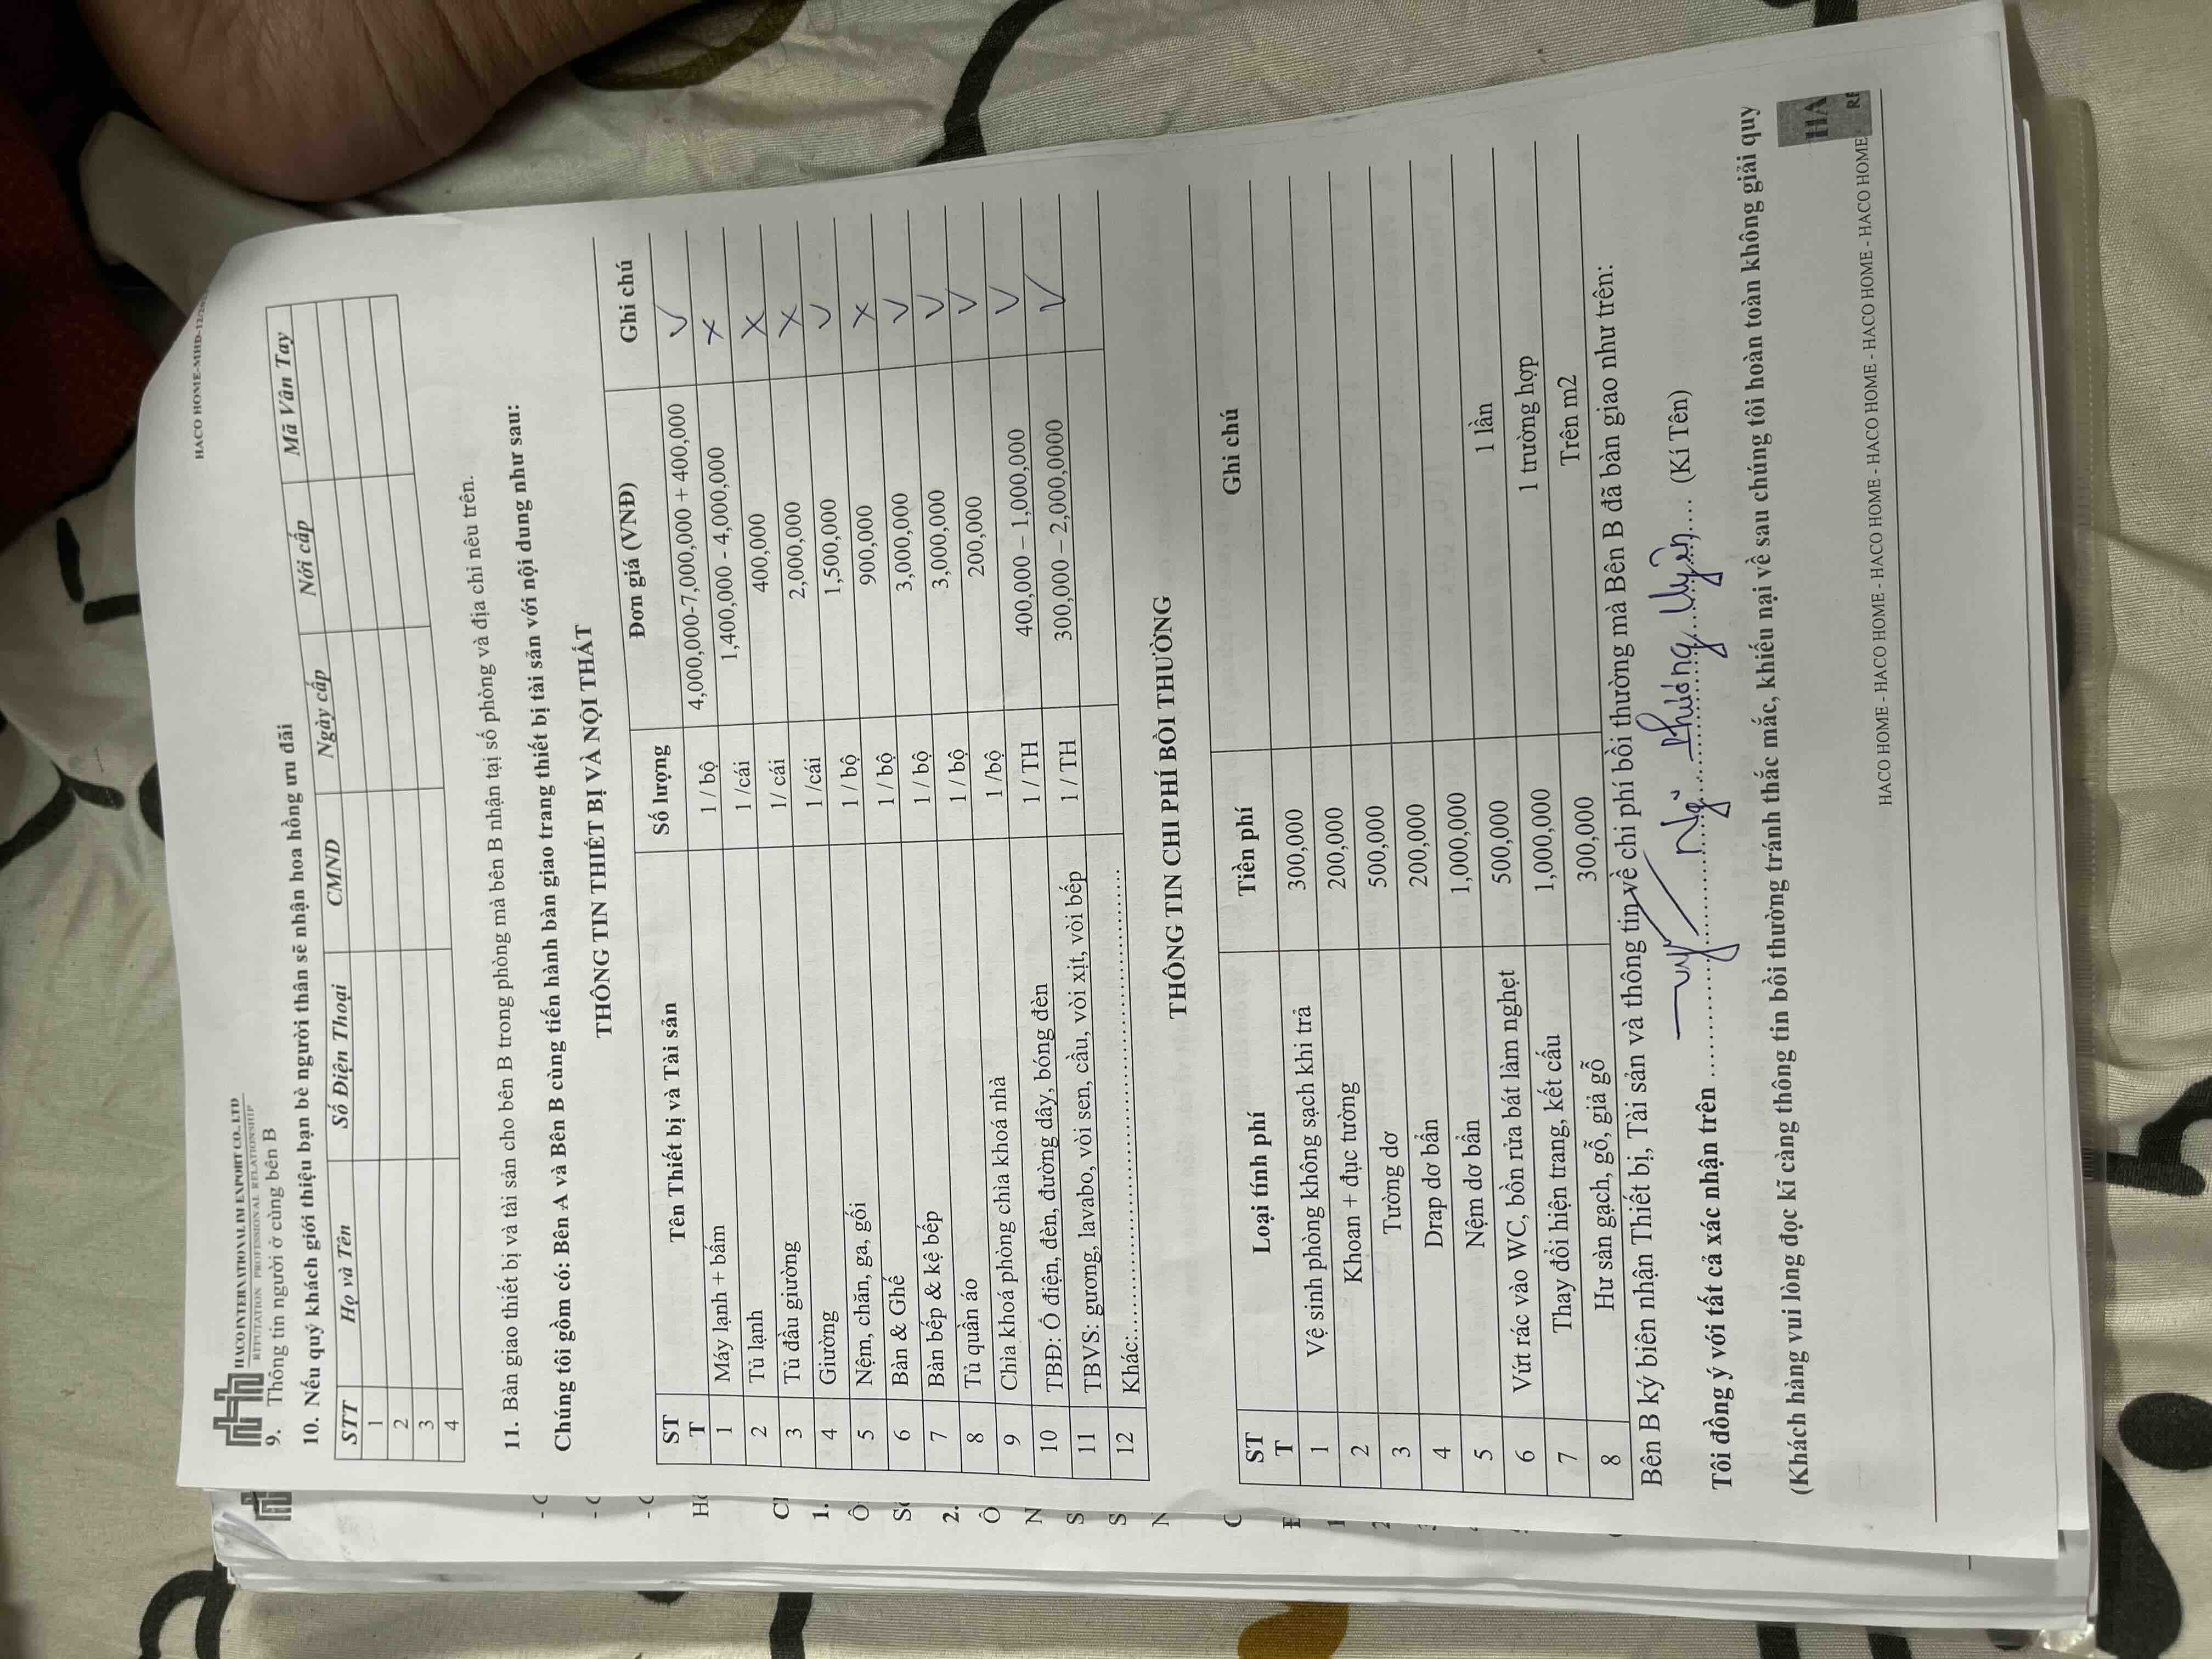 HACO HOME-MHD-12/20
HACO INTERNATIONAL IM EXPORT CO., LTD
REPUTATION PROFESSIONAL RELATIONSHIP
9. Thông tin người ở cùng bên B
10. Nếu quý khách giới thiệu bạn bè người thân sẽ nhận hoa hồng ưu đãi
STT Họ và Tên Số Điện Thoại CMND Ngày cấp Nơi cấp Mã Vân Tay
1
2
3
4
11. Bàn giao thiết bị và tài sản cho bên B trong phòng mà bên B nhận tại số phòng và địa chỉ nêu trên.
Chúng tôi gồm có: Bên A và Bên B cùng tiến hành bàn giao trang thiết bị tài sản với nội dung như sau:
THÔNG TIN THIẾT BỊ VÀ NỘI THẤT
STT Tên Thiết bị và Tài sản Số lượng Đơn giá (VNĐ) Ghi chú
1 Máy lạnh + bấm 1 / bộ 4,000,000-7,000,000 + 400,000 ✓
2 Tủ lạnh 1 /cái 1,400,000 - 4,000,000 x
3 Tủ đầu giường 1/ cái 400,000 x
4 Giường 1 /cái 2,000,000 x
5 Nệm, chăn, ga, gối 1 / bộ 1,500,000 ✓
6 Bàn & Ghế 1 / bộ 900,000 x
7 Bàn bếp & kệ bếp 1 / bộ 3,000,000 ✓
8 Tủ quần áo 1 / bộ 3,000,000 ✓
9 Chìa khoá phòng chìa khoá nhà 1 /bộ 200,000 ✓
10 TBĐ: Ổ điện, đèn, đường dây, bóng đèn 1 / TH 400,000 – 1,000,000 ✓
11 TBVS: gương, lavabo, vòi sen, cầu, vòi xịt, vòi bếp 1 / TH 300,000 – 2,000,0000 ✓
12 Khác:..............................
THÔNG TIN CHI PHÍ BỒI THƯỜNG
STT Loại tính phí Tiền phí Ghi chú
1 Vệ sinh phòng không sạch khi trả 300,000
2 Khoan + đục tường 200,000
3 Tường dơ 500,000
4 Drap dơ bẩn 200,000
5 Nệm dơ bẩn 1,000,000
6 Vứt rác vào WC, bồn rửa bát làm nghẹt 500,000 1 lần
7 Thay đổi hiện trang, kết cấu 1,000,000 1 trường hợp
8 Hư sàn gạch, gỗ, giả gỗ 300,000 Trên m2
Bên B ký biên nhận Thiết bị, Tài sản và thông tin về chi phí bồi thường mà Bên B đã bàn giao như trên:
Tôi đồng ý với tất cả xác nhận trên .............. Phương Uyên.... (Kí Tên)
(Khách hàng vui lòng đọc kĩ càng thông tin bồi thường tránh thắc mắc, khiếu nại về sau chúng tôi hoàn toàn không giải quy
HA
RE
HACO HOME - HACO HOME - HACO HOME - HACO HOME - HACO HOME - HACO HOME - HACO HOME